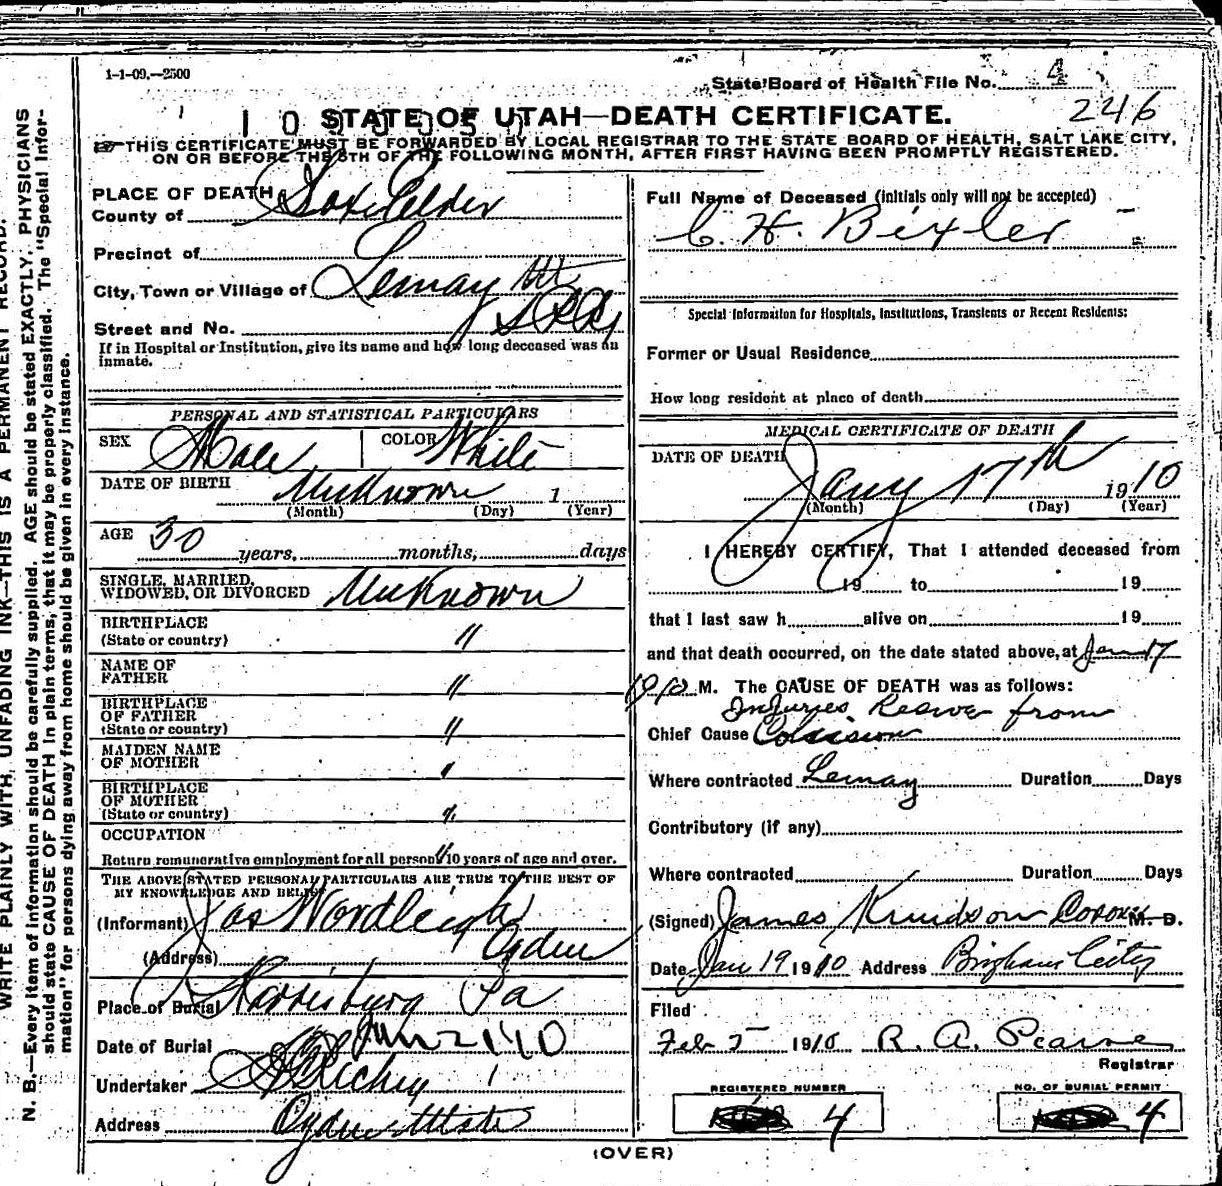 1-1-09.—2500
State Board of Health File No. 4
246
STATE OF UTAH—DEATH CERTIFICATE.
THIS CERTIFICATE MUST BE FORWARDED BY LOCAL REGISTRAR TO THE STATE BOARD OF HEALTH, SALT LAKE CITY,
ON OR BEFORE THE 5TH OF THE FOLLOWING MONTH, AFTER FIRST HAVING BEEN PROMPTLY REGISTERED.
PLACE OF DEATH
County of Box Elder
Precinct of
City, Town or Village of Lemay Ut
Street and No. S P Ry
If in Hospital or Institution, give its name and how long deceased was an
inmate.
PERSONAL AND STATISTICAL PARTICULARS
SEX Male COLOR White
DATE OF BIRTH Unknown 1
(Month) (Day) (Year)
AGE 30 years, months, days
SINGLE, MARRIED,
WIDOWED, OR DIVORCED Unknown
BIRTHPLACE
(State or country) "
NAME OF
FATHER "
BIRTHPLACE
OF FATHER
(State or country) "
MAIDEN NAME
OF MOTHER "
BIRTHPLACE
OF MOTHER
(State or country) "
OCCUPATION
Return remunerative employment for all persons 10 years of age and over. "
THE ABOVE STATED PERSONAL PARTICULARS ARE TRUE TO THE BEST OF
MY KNOWLEDGE AND BELIEF
(Informant) Jas Wordleigh
(Address) Ogden
Place of Burial Harrisburg Pa
Date of Burial Jan 21 10
Undertaker Richey
Address Ogden Utah
Full Name of Deceased (initials only will not be accepted)
C. H. Bixler
Special Information for Hospitals, Institutions, Transients or Recent Residents:
Former or Usual Residence
How long resident at place of death
MEDICAL CERTIFICATE OF DEATH
DATE OF DEATH
Jany 17th 1910
(Month) (Day) (Year)
I HEREBY CERTIFY, That I attended deceased from
19 to 19
that I last saw h alive on 19
and that death occurred, on the date stated above, at Jan 17
1910 M. The CAUSE OF DEATH was as follows:
Injuries from
Chief Cause Colision
Where contracted Lemay Duration Days
Contributory (if any)
Where contracted Duration Days
(Signed) James Knudson Coroner M. D.
Date Jan 19 1910 Address Brigham City
Filed
Feb 5 1910 R. A. Pearse
Registrar
REGISTERED NUMBER
4
NO. OF BURIAL PERMIT
4
(OVER)
WRITE PLAINLY WITH UNFADING INK—THIS IS A PERMANENT RECORD.
N. B.—Every item of information should be carefully supplied. AGE should be stated EXACTLY. PHYSICIANS
should state CAUSE OF DEATH in plain terms, that it may be properly classified. The "Special Infor-
mation" for persons dying away from home should be given in every instance.